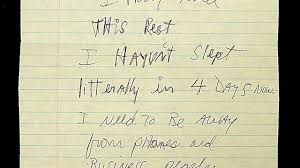 THIS REST
I HAVEN'T Slept
litterally in 4 DAYS Now.
I NEED To BE AWAY
from PHONES and
Business people